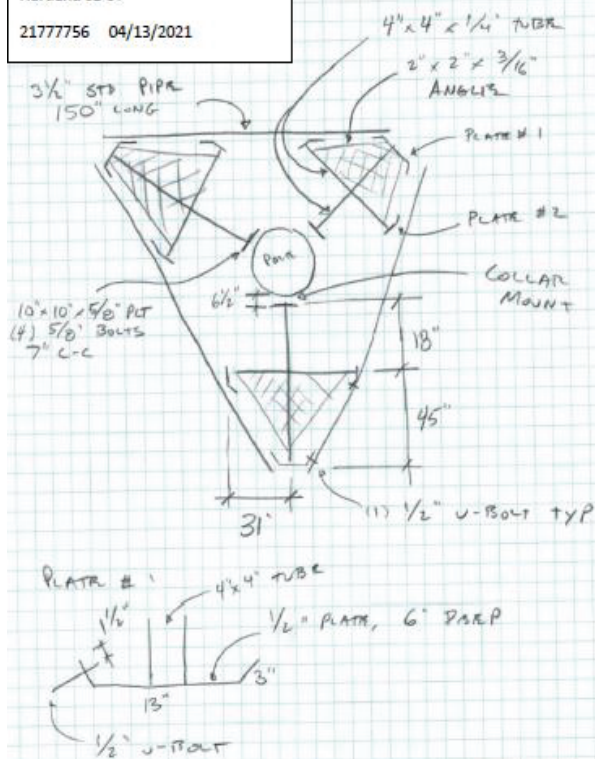 21777756 04/13/2021
4" x 4" x 1/4" TUBE
2" x 2" x 3/16"
ANGLE
3 1/2" STD PIPE
150" LONG
PLATE # 1
PLATE #2
POLE
COLLAR
MOUNT
6 1/2"
10" x 10" x 5/8" PLT
(4) 5/8" BOLTS
7" C-C
18"
45"
31"
(1) 1/2" U-BOLT TYP
PLATE # 1
4"x4" TUBE
1 1/2"
1/2" PLATE, 6" DEEP
3"
13"
1/2" U-BOLT